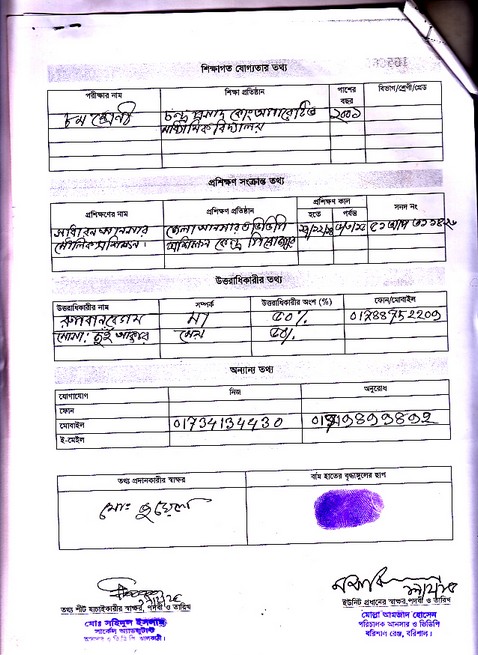 শিক্ষাগত যোগ্যতার তথ্য
পরীক্ষার নাম শিক্ষা প্রতিষ্ঠান পাশের বছর বিভাগ/শ্রেণী/গ্রেড
৮ম শ্রেণী চন্দ্র প্রসাদ কোঃ অপারেটিভ ২০০১
মাধ্যমিক বিদ্যালয়
প্রশিক্ষণ সংক্রান্ত তথ্য
প্রশিক্ষণের নাম প্রশিক্ষণ প্রতিষ্ঠান প্রশিক্ষণ কাল সনদ নং
হতে পর্যন্ত
সাধারন আনসার জেলা আনসার ভিডিপি
মৌলিক প্রশিক্ষন। প্রশিক্ষন কেন্দ্র পিরোজপুর
উত্তরাধিকারীর তথ্য
উত্তরাধিকারীর নাম সম্পর্ক উত্তরাধিকারীর অংশ (%) ফোন/মোবাইল
রুপবান বেগম মা ৫০% 01788752209
আক্তার মেয়ে ৫০%
অন্যান্য তথ্য
যোগাযোগ নিজ অনুরোধ
ফোন
মোবাইল 01734134430
ই-মেইল
তথ্য প্রদানকারীর স্বাক্ষর বাম হাতের বৃদ্ধাঙ্গুলের ছাপ
মোঃ জুয়েল
তথ্য শীট যাচাইকারীর স্বাক্ষর, পদবী ও তারিখ
মোঃ সহিদুল ইসলাম
সার্কেল অ্যাডজুট্যান্ট
ইউনিট প্রধানের স্বাক্ষর, পদবী ও তারিখ
মোল্লা আমজাদ হোসেন
পরিচালক আনসার ও ভিডিপি
বরিশাল রেঞ্জ, বরিশাল।